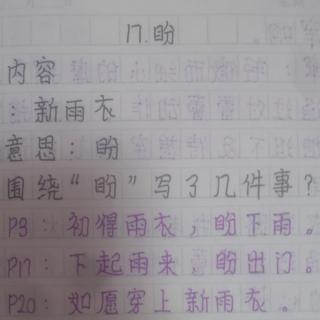 17.盼
内容
:新雨衣
意思:盼
围绕“盼”写了几件事?
P3:初得雨衣,盼下雨。
P17:下起雨来,盼出门。
P20:如愿穿上新雨衣。